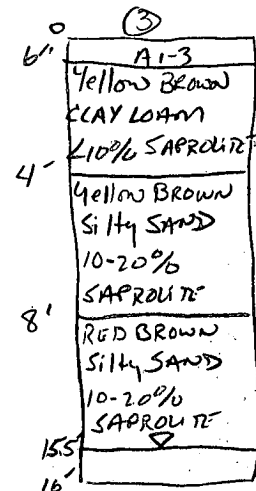 0 ③
6" A1-3
Yellow BROWN
CLAY LOAM
<10% SAPROLITE
4'
Yellow BROWN
Silty SAND
10-20%
SAPROLITE
8'
RED BROWN
Silty SAND
10-20%
SAPROLITE
15.5'
16'